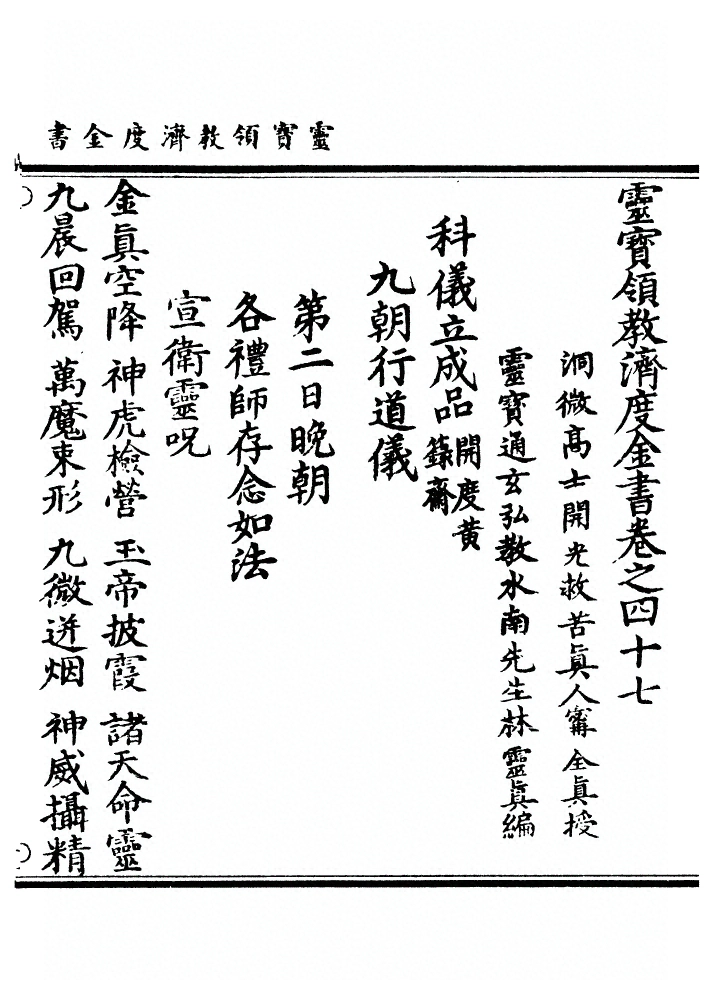 靈寶領教濟度金書
靈寶領教濟度金書卷之四十七
洞微高士開光救苦眞人甯全眞授
靈寶通玄弘教水南先生林靈眞編
科儀立成品開度黃籙齋
九朝行道儀
第二日晚朝
各禮師存念如法
宣衛靈呪
金眞空降 神虎檢營 玉帝披霞 諸天命靈
九晨回駕 萬魔束形 九微迸烟 神威攝精